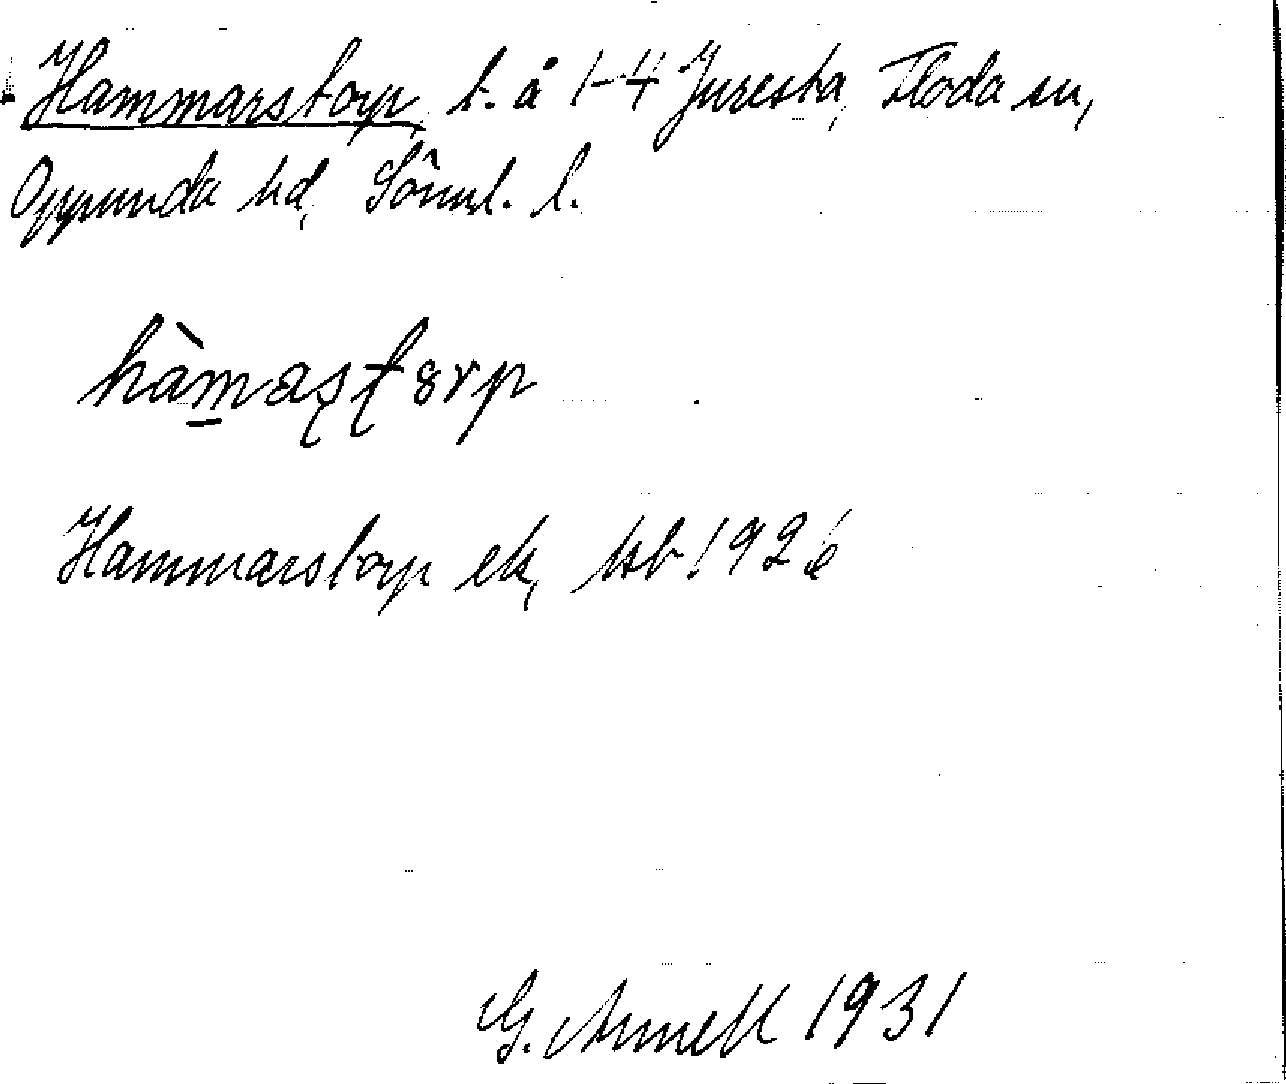 Hammarstorp, t. å 1-4 Juresta, Floda sn,
Oppunda hd, Sörml. l.
hàmaʂʈɞrp
Hammarstorp ek, hsb 1926
G. Arnell 1931